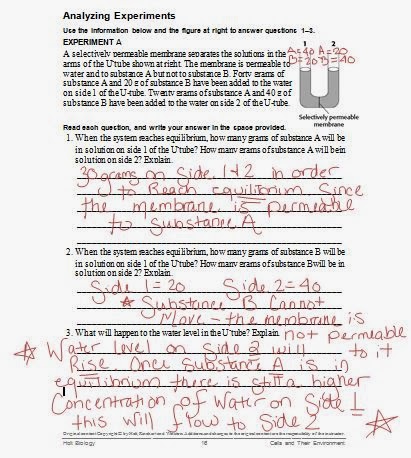 Analyzing Experiments
Use the information below and the figure at right to answer questions 1–3.
EXPERIMENT A
A selectively permeable membrane separates the solutions in the
arms of the U tube shown at right. The membrane is permeable to
water and to substance A but not to substance B. Forty grams of
substance A and 20 g of substance B have been added to the water
on side 1 of the U-tube. Twenty grams of substance A and 40 g of
substance B have been added to the water on side 2 of the U-tube.
1 2
A=40 A=20
B=20 B=40
Selectively permeable
membrane
Read each question, and write your answer in the space provided.
1. When the system reaches equilibrium, how many grams of substance A will be
in solution on side 1 of the U tube? How many grams of substance A will be in
solution on side 2? Explain.
30 grams on Side 1+2 in order
to Reach equilibrium Since
the membrane is permeable
to Substance A
2. When the system reaches equilibrium, how many grams of substance B will be
in solution on side 1 of the U tube? How many grams of substance B will be in
solution on side 2? Explain.
Side 1=20 Side 2=40
Substance B Cannot
Move – the membrane is
not permeable
to it
3. What will happen to the water level in the U tube? Explain.
Water level on Side 2 will
Rise. Once Substance A is in
equilibrium there is still a higher
Concentration of Water on Side 1
this will flow to Side 2
Holt Biology 16 Cells and Their Environment